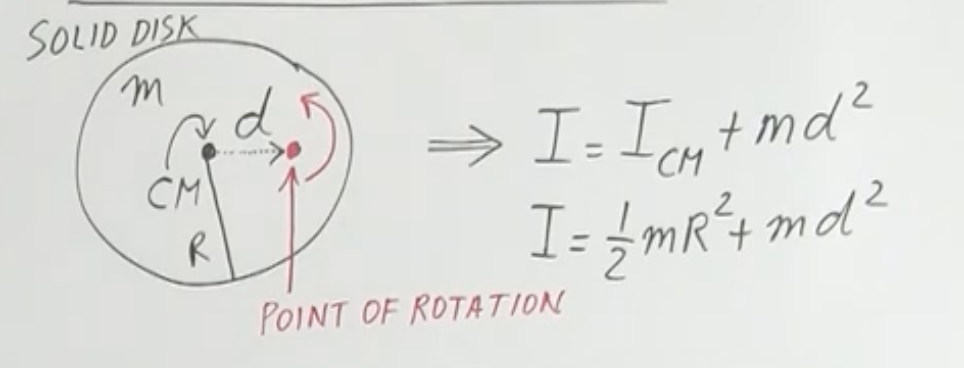 SOLID DISK
m
d
CM
R
POINT OF ROTATION
⇒ I = I_CM + md²
I = ½mR² + md²